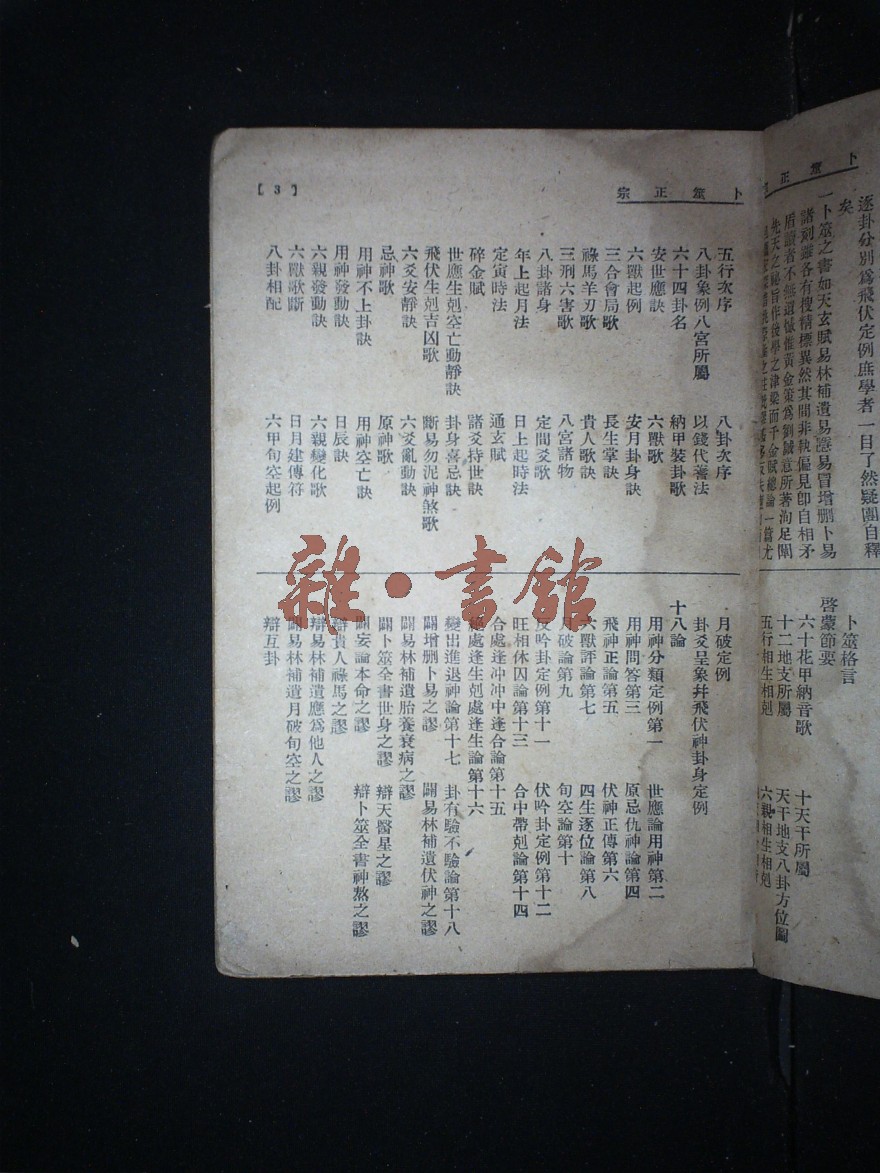 卜筮正
逐卦分別爲飛伏定例庶學者一日了然疑團自釋
矣
一卜筮之書如天玄賦易林補遺易隱易冒增刪卜易
諸刻雖各有搜精標異然其間非執偏見卽自相矛
盾讀者不無遺憾惟黃金策爲劉誠意所著洵足闡
先天之秘旨作後學之津梁而千金賦總論一篇尤
卜筮格言
啓蒙節要
六十花甲納音歌
十天干所屬
十二地支所屬
天干地支八卦方位圖
五行相生相剋
六親相生相剋
卜筮正宗
【3】
五行次序
八卦次序
八卦象例八宮所屬
以錢代蓍法
六十四卦名
納甲裝卦歌
安世應訣
六獸歌
六獸起例
安月卦身訣
三合會局歌
長生掌訣
祿馬羊刃歌
貴人歌訣
三刑六害歌
八宮諸物
八卦諸身
定間爻歌
年上起月法
日上起時法
定寅時法
通玄賦
碎金賦
諸爻持世訣
世應生剋空亡動靜訣
卦身喜忌訣
飛伏生剋吉凶歌
斷易勿泥神煞歌
六爻安靜訣
六爻亂動訣
忌神歌
原神歌
用神不上卦訣
用神空亡訣
用神發動訣
日辰訣
六親發動訣
六親變化歌
六獸歌斷
日月建傳符
八卦相配
六甲旬空起例
月破定例
卦爻呈象幷飛伏神卦身定例
十八論
用神分類定例第一
世應論用神第二
用神問答第三
原忌仇神論第四
飛神正論第五
伏神正傳第六
六獸評論第七
四生逐位論第八
月破論第九
旬空論第十
反吟卦定例第十一
伏吟卦定例第十二
旺相休囚論第十三
合中帶剋論第十四
合處逢冲冲中逢合論第十五
絕處逢生剋處逢生論第十六
變出進退神論第十七
卦有驗不驗論第十八
闢增刪卜易之謬
闢易林補遺伏神之謬
闢易林補遺胎養衰病之謬
闢卜筮全書世身之謬
辯天醫星之謬
闢妄論本命之謬
辯卜筮全書神煞之謬
辯貴人祿馬之謬
辯易林補遺應爲他人之謬
闢易林補遺月破旬空之謬
辯互卦
雜·書館